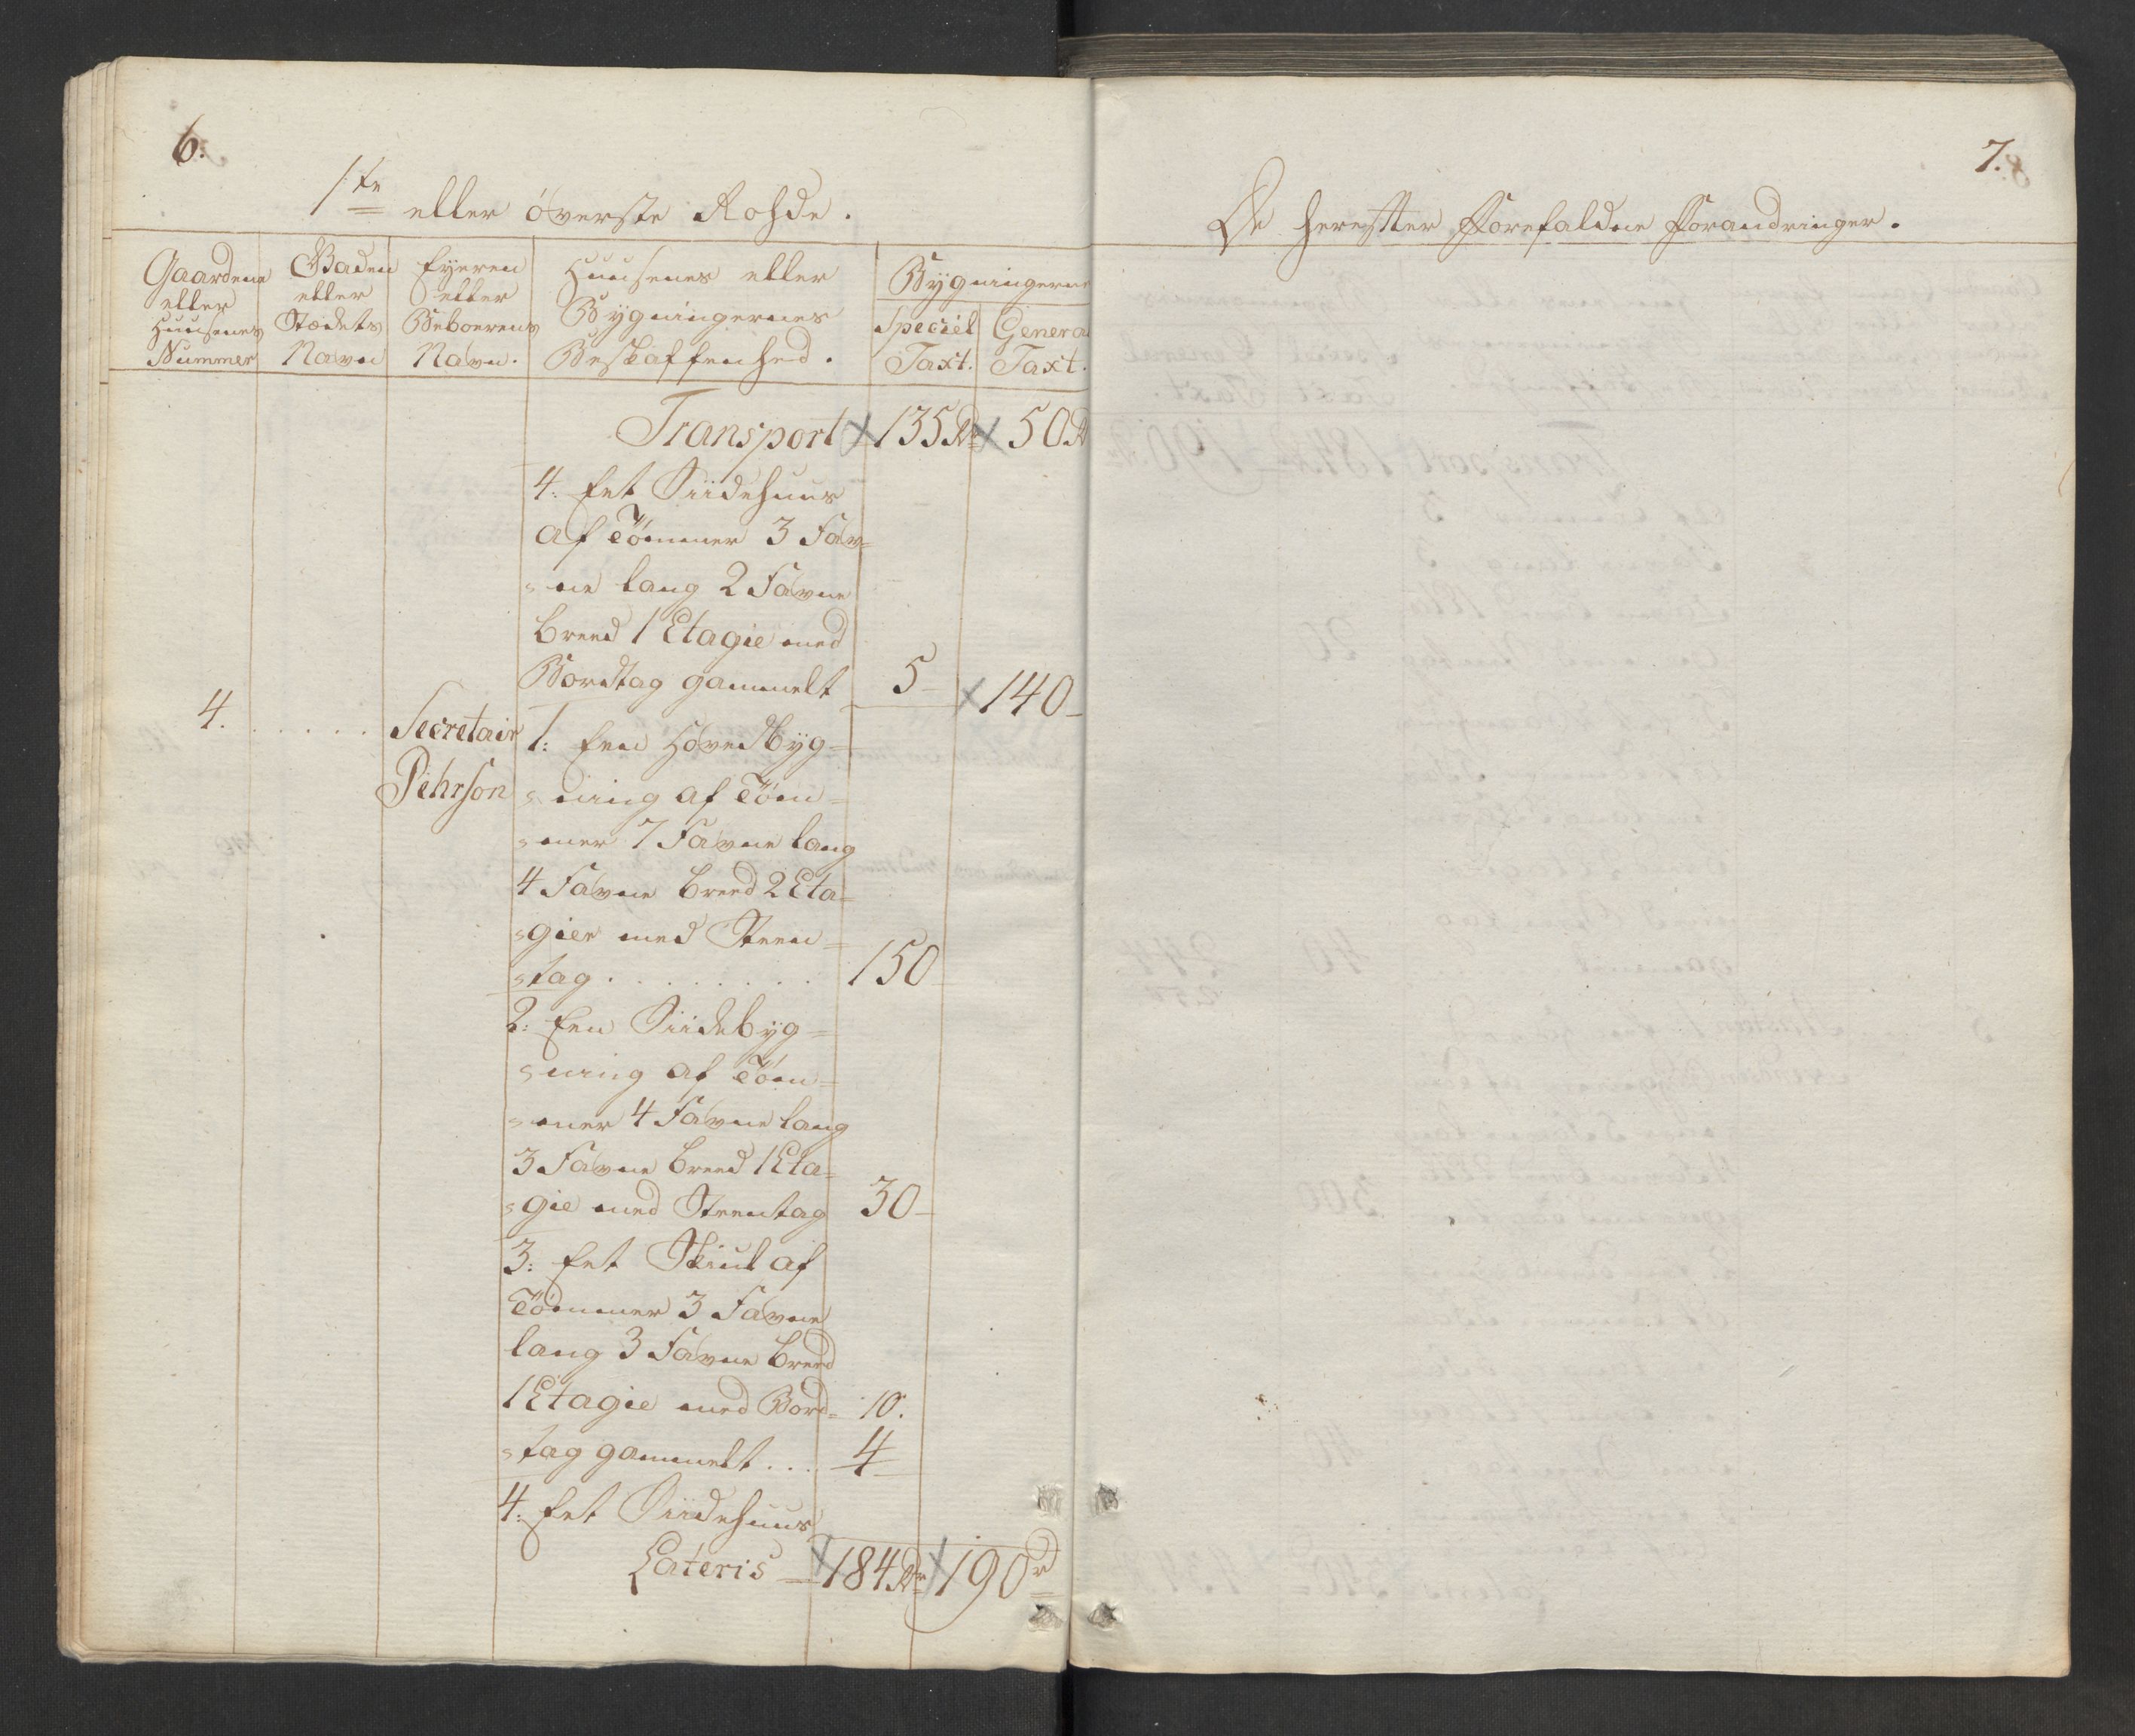 6.
1ste eller øverste Rohde.
Gaardene eller Huusenes Nummer
Gaden eller Stædets Navn
Eyeren eller Beboerens Navn.
Huusenes eller Bygningernes Beskaffenhed.
Bygningerne
Speciel Taxt.
General Taxt.
Transport 135 Rdr 50 Rd
4: Eet Siidehuus
af Tömmer 3 Fav=
=ne lang 2 Favne
breed 1 Etagie med
Bordtag gammelt 5 140
4. . . . . . Secretair 1: Een Hovedbyg=
Pehrson =ning af Töm=
=mer 7 Favne lang
4 Favne breed 2 Eta=
=gier med Steen=
=tag . . . . . . . . 150
2: Een Siidebyg=
=ning af Töm=
=mer 4 Favne lang
3 Favne breed 1 Eta=
=gie med Steentag 30
3: Eet Skiul af
Tömmer 3 Favne
lang 3 Favne breed
1 Etagie med Bord= 10.
=tag gammelt . . . 4
4: Eet Siidehuus
Lateris 184 Rdr 190 rd
7.
De herefter Forefaldne Forandringer.